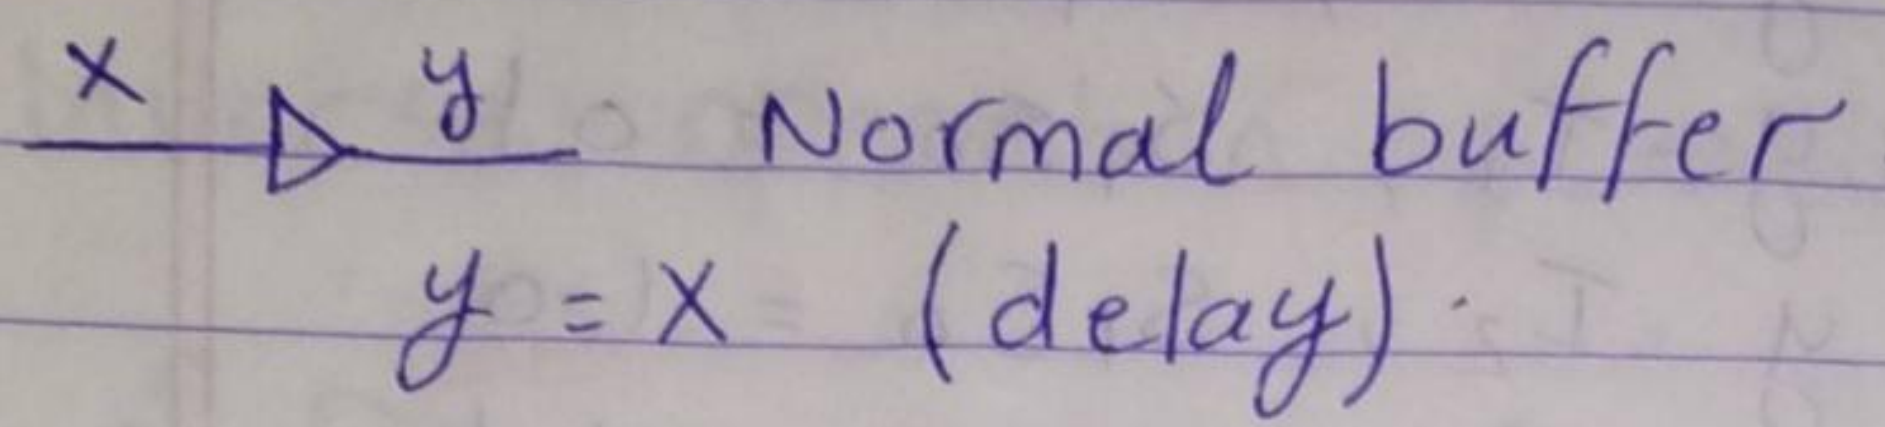 x y Normal buffer
y = x (delay).